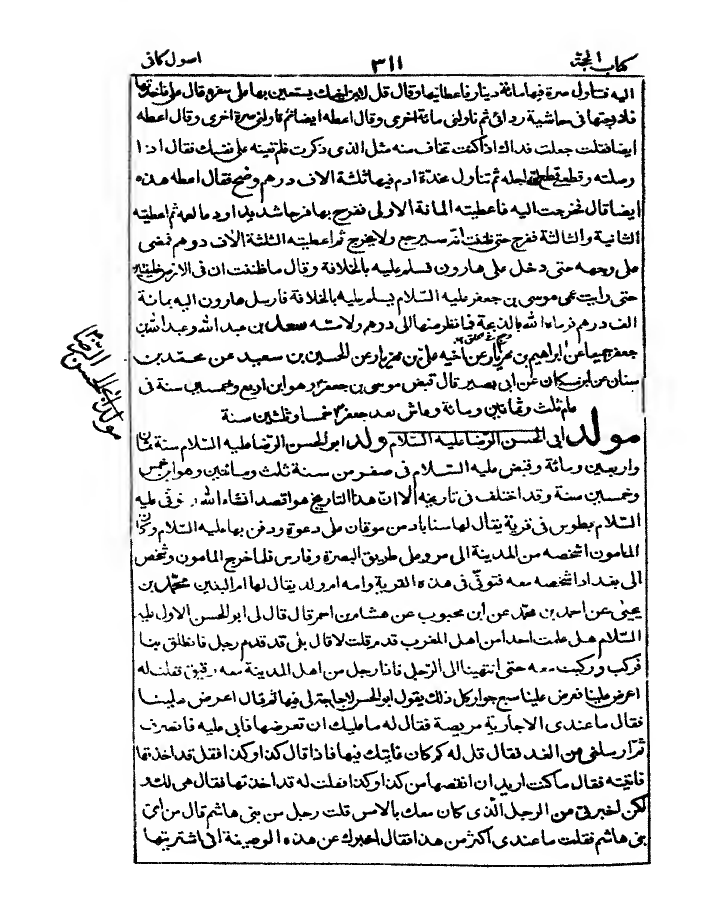 كتاب الحجة
٣١١
اصول كافى
اليه فتناول صرة فيها مائة دينار فاعطانيها وقال قل لابن اخيك يستعين بها على سفره قال على فاخذتها
فادرجتها فى حاشية ردائى ثم ناولنى مائة اخرى وقال اعطه ايضا ثم ناولنى صرة اخرى وقال اعطه
ايضا فقلت جعلت فداك اذا كنت تخاف منه مثل الذى ذكرت فلم تعينه على نفسك فقال اذا
وصلته وقطعنى قطع الله اجله ثم تناول مخدة ادم فيها ثلثة الاف درهم وضح فقال اعطه هذه
ايضا قال فخرجت اليه فاعطيته المائة الاولى ففرح بها فرحا شديدا ودعا لعمه ثم اعطيته
الثانية والثالثة ففرح حتى ظننت انه سيرجع ولا يخرج ثم اعطيته الثلثة الاف درهم فمضى
على وجهه حتى دخل على هارون فسلم عليه بالخلافة وقال ما ظننت ان فى الارض خليفتين
حتى رايت عمى موسى بن جعفر عليه السلام يسلم عليه بالخلافة فارسل هارون اليه بمائة
الف درهم فرماه الله بالذبحة فما نظر منها الى درهم ولا مسه سعد بن عبد الله وعبد الله بن
جعفر جميعا عن ابراهيم بن مهزيار عن اخيه على بن مهزيار عن الحسين بن سعيد عن محمد بن
سنان عن ابن مسكان عن ابى بصير قال قبض موسى بن جعفر وهو ابن اربع وخمسين سنة فى
عام ثلث وثمانين ومائة وعاش بعد جعفر خمسا وثلثين سنة
مولد ابى الحسن الرضا
مولد ابى الحسن الرضا عليه السلام ولد ابو الحسن الرضا عليه السلام سنة ثمان
واربعين ومائة وقبض عليه السلام فى صفر من سنة ثلث ومائتين وهو ابن خمس
وخمسين سنة وقد اختلف فى تاريخه الا ان هذا التاريخ هو اقصد انشاء الله وتوفى عليه
السلام بطوس فى قرية يقال لها سناباد من موقان على دعوة ودفن بها عليه السلام وكان
المامون اشخصه من المدينة الى مرو على طريق البصرة وفارس فلما خرج المامون وشخص
الى بغداد اشخصه معه فتوفى فى هذه القرية وامه ام ولد يقال لها ام البنين محمد بن
يحيى عن احمد بن محمد عن ابن محبوب عن هشام بن احمر قال قال لى ابو الحسن الاول عليه
السلام هل علمت احدا من اهل المغرب قدم قلت لا قال بلى قد قدم رجل فانطلق بنا
فركب وركبت معه حتى انتهينا الى الرجل فاذا رجل من اهل المدينة معه رقيق فقلت له
اعرض علينا فعرض علينا سبع جوار كل ذلك يقول ابو الحسن لا حاجة لى فيها ثم قال اعرض علينا
فقال ما عندى الا جارية مريضة فقال له ما عليك ان تعرضها فابى عليه فانصرف
ثم ارسلنى من الغد فقال قل له كم كان غايتك فيها فاذا قال كذا وكذا فقل قد اخذتها
فاتيته فقال ما كنت اريد ان انقصها من كذا وكذا فقلت له قد اخذتها فقال هى لك و
لكن اخبرنى من الرجل الذى كان معك بالامس قلت رجل من بنى هاشم قال من اى
بنى هاشم فقلت ما عندى اكثر من هذا فقال اخبرك عن هذه الوصيفة انى اشتريتها